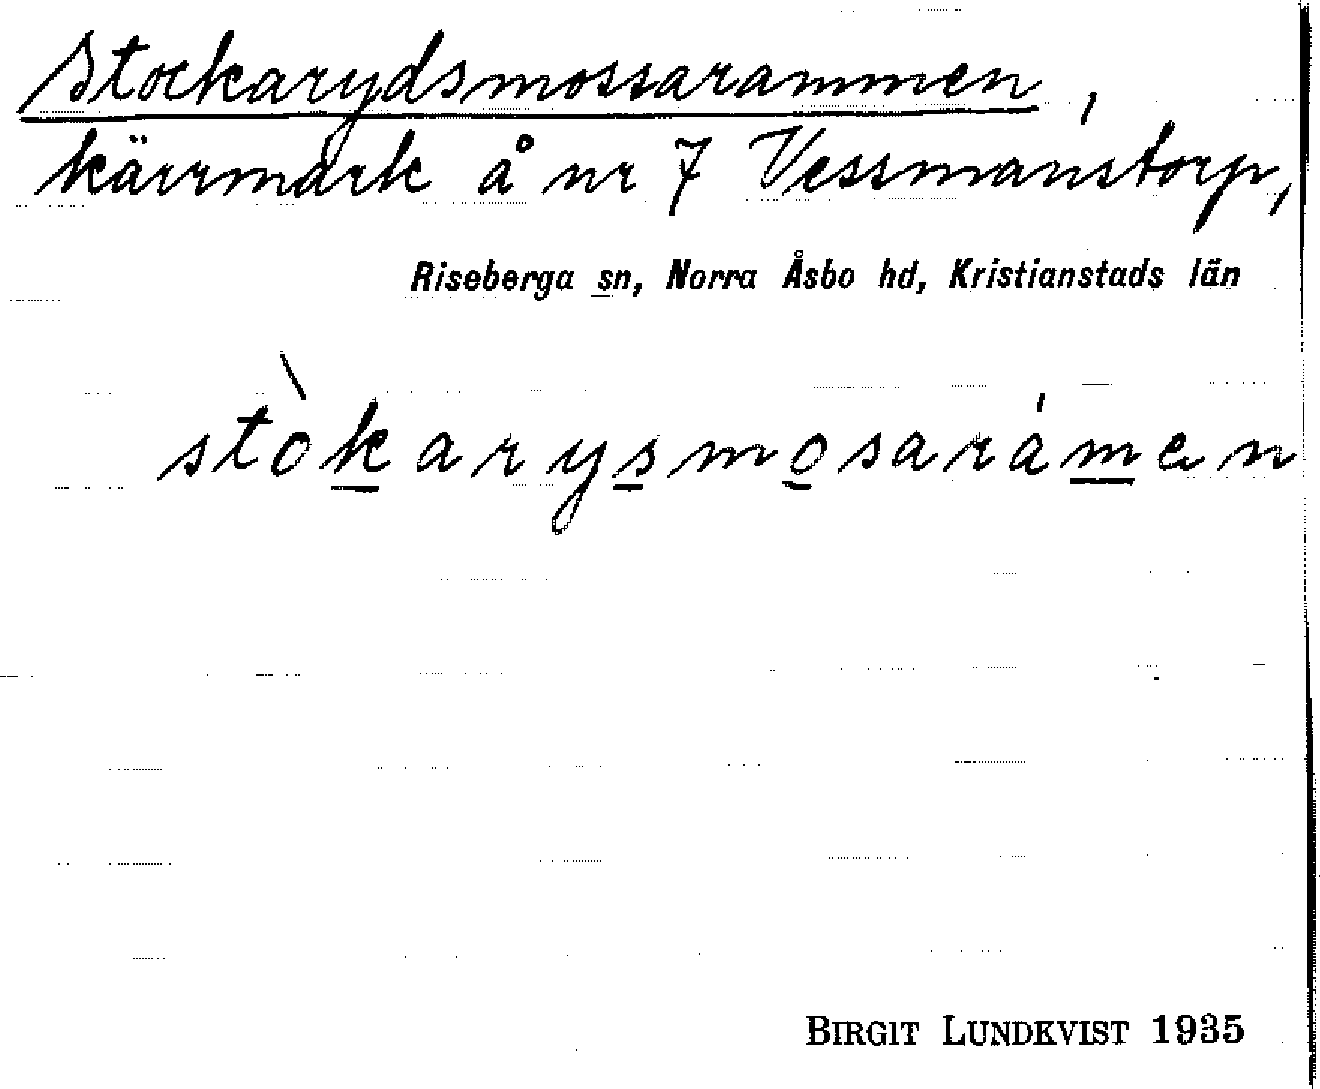 Stockarydsmossarammen,
kärrmark å nr 7 Vessmanstorp,
Riseberga sn, Norra Åsbo hd, Kristianstads län
stòkarysmosarámen
BIRGIT LUNDKVIST 1935